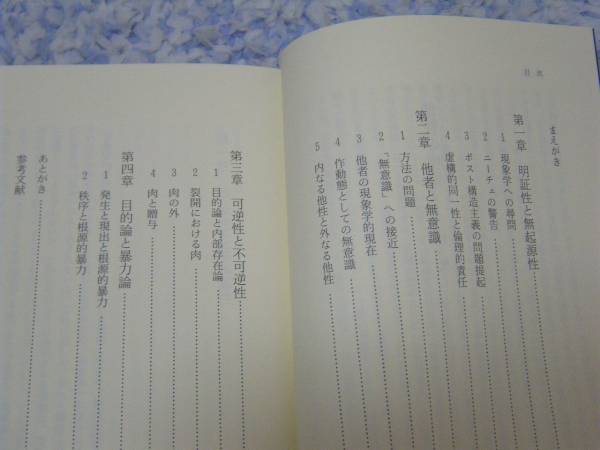 目次
まえがき
第一章 明証性と無起源性
1 現象学への尋問
2 ニーチェの警告
3 ポスト構造主義の問題提起
4 虚構的同一性と倫理的責任
第二章 他者と無意識
1 方法の問題
2 「無意識」への接近
3 他者の現象学的現在
4 作動態としての無意識
5 内なる他性と外なる他性
第三章 可逆性と不可逆性
1 目的論と内部存在論
2 裂開における肉
3 肉の外
4 肉と贈与
第四章 目的論と暴力論
1 発生と現出と根源的暴力
2 秩序と根源的暴力
あとがき
参考文献